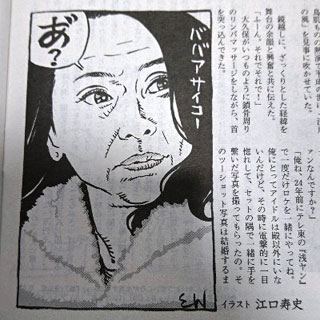 鏡越しに、ざっくりとした経緯を
舞台の余韻と興奮と共に伝えた。
「ふーん。それでそれで！」
大久保がいつものように鎖骨周り
のリンパマッサージをしながら、首
を突っ込んできた。
あ゛？
ババアサイコー
ァンなんですか？」
「俺ね、24年前にテレ東の『浅ヤン』
で一度だけロケを一緒にやってね。
俺にとってアイドルは殿以外にいな
いんだけど、その時に電撃的に一目
惚れして、セットの隅で一緒に手を
繋いだ写真を撮ってもらったの。そ
のツーショット写真は結婚するま
イラスト 江口寿史